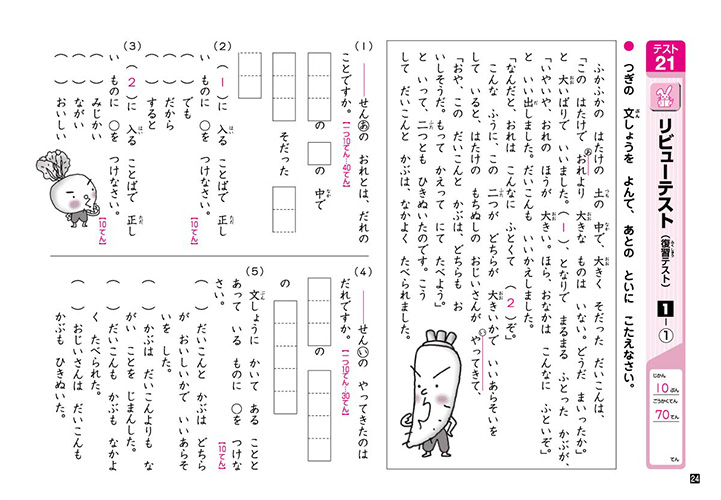 テスト
21
リビューテスト(復習テスト)
ふくしゅう
1-①
じかん
10ぷん
ごうかくてん
70てん
てん
● つぎの 文しょうを よんで、あとの といに こたえなさい。
ふかふかの はたけの 土の 中で、大きく そだった だいこんは、
「この はたけで おれより 大きな ものは いない。どうだ まいったか。」
あ
と 大いばりで いいました。(1)、となりで まるまる ふとった かぶが、
「いやいや、おれの ほうが 大きい。ほら、おなかは こんなに ふといぞ。」
と いい出しました。だいこんも いいかえしました。
「なんだと、おれは こんなに ふとくて (2)ぞ。」
こんな ふうに、この 二つが どちらが 大きいかで いいあらそいを
して いると、はたけの もちぬしの おじいさんが やってきて、
い
「おや、この だいこんと かぶは、どちらも お
いしそうだ。もって かえって にて たべよう」
と いって、二つとも ひきぬいたのです。こう
して だいこんと かぶは、なかよく たべられました。
(1) ――せんあの おれとは、だれの
ことですか。【一つ10てん―40てん】
の
の 中で
そだった
(2) (1)に 入る ことばで 正し
い ものに ○を つけなさい。
【10てん】
( ) でも
( ) だから
( ) すると
(3) (2)に 入る ことばで 正し
い ものに ○を つけなさい。
【10てん】
( ) みじかい
( ) ながい
( ) おいしい
(4) ――せんいの やってきたのは
だれですか。【一つ10てん―30てん】
の
の
(5) 文しょうに かいて ある ことと
あって いる ものに ○を つけな
さい。
【10てん】
( ) だいこんと かぶは どちら
が おいしいかで いいあらそ
いを した。
( ) かぶは だいこんよりも な
がい ことを じまんした。
( ) だいこんも かぶも なかよ
く たべられた。
( ) おじいさんは だいこんも
かぶも ひきぬいた。
24